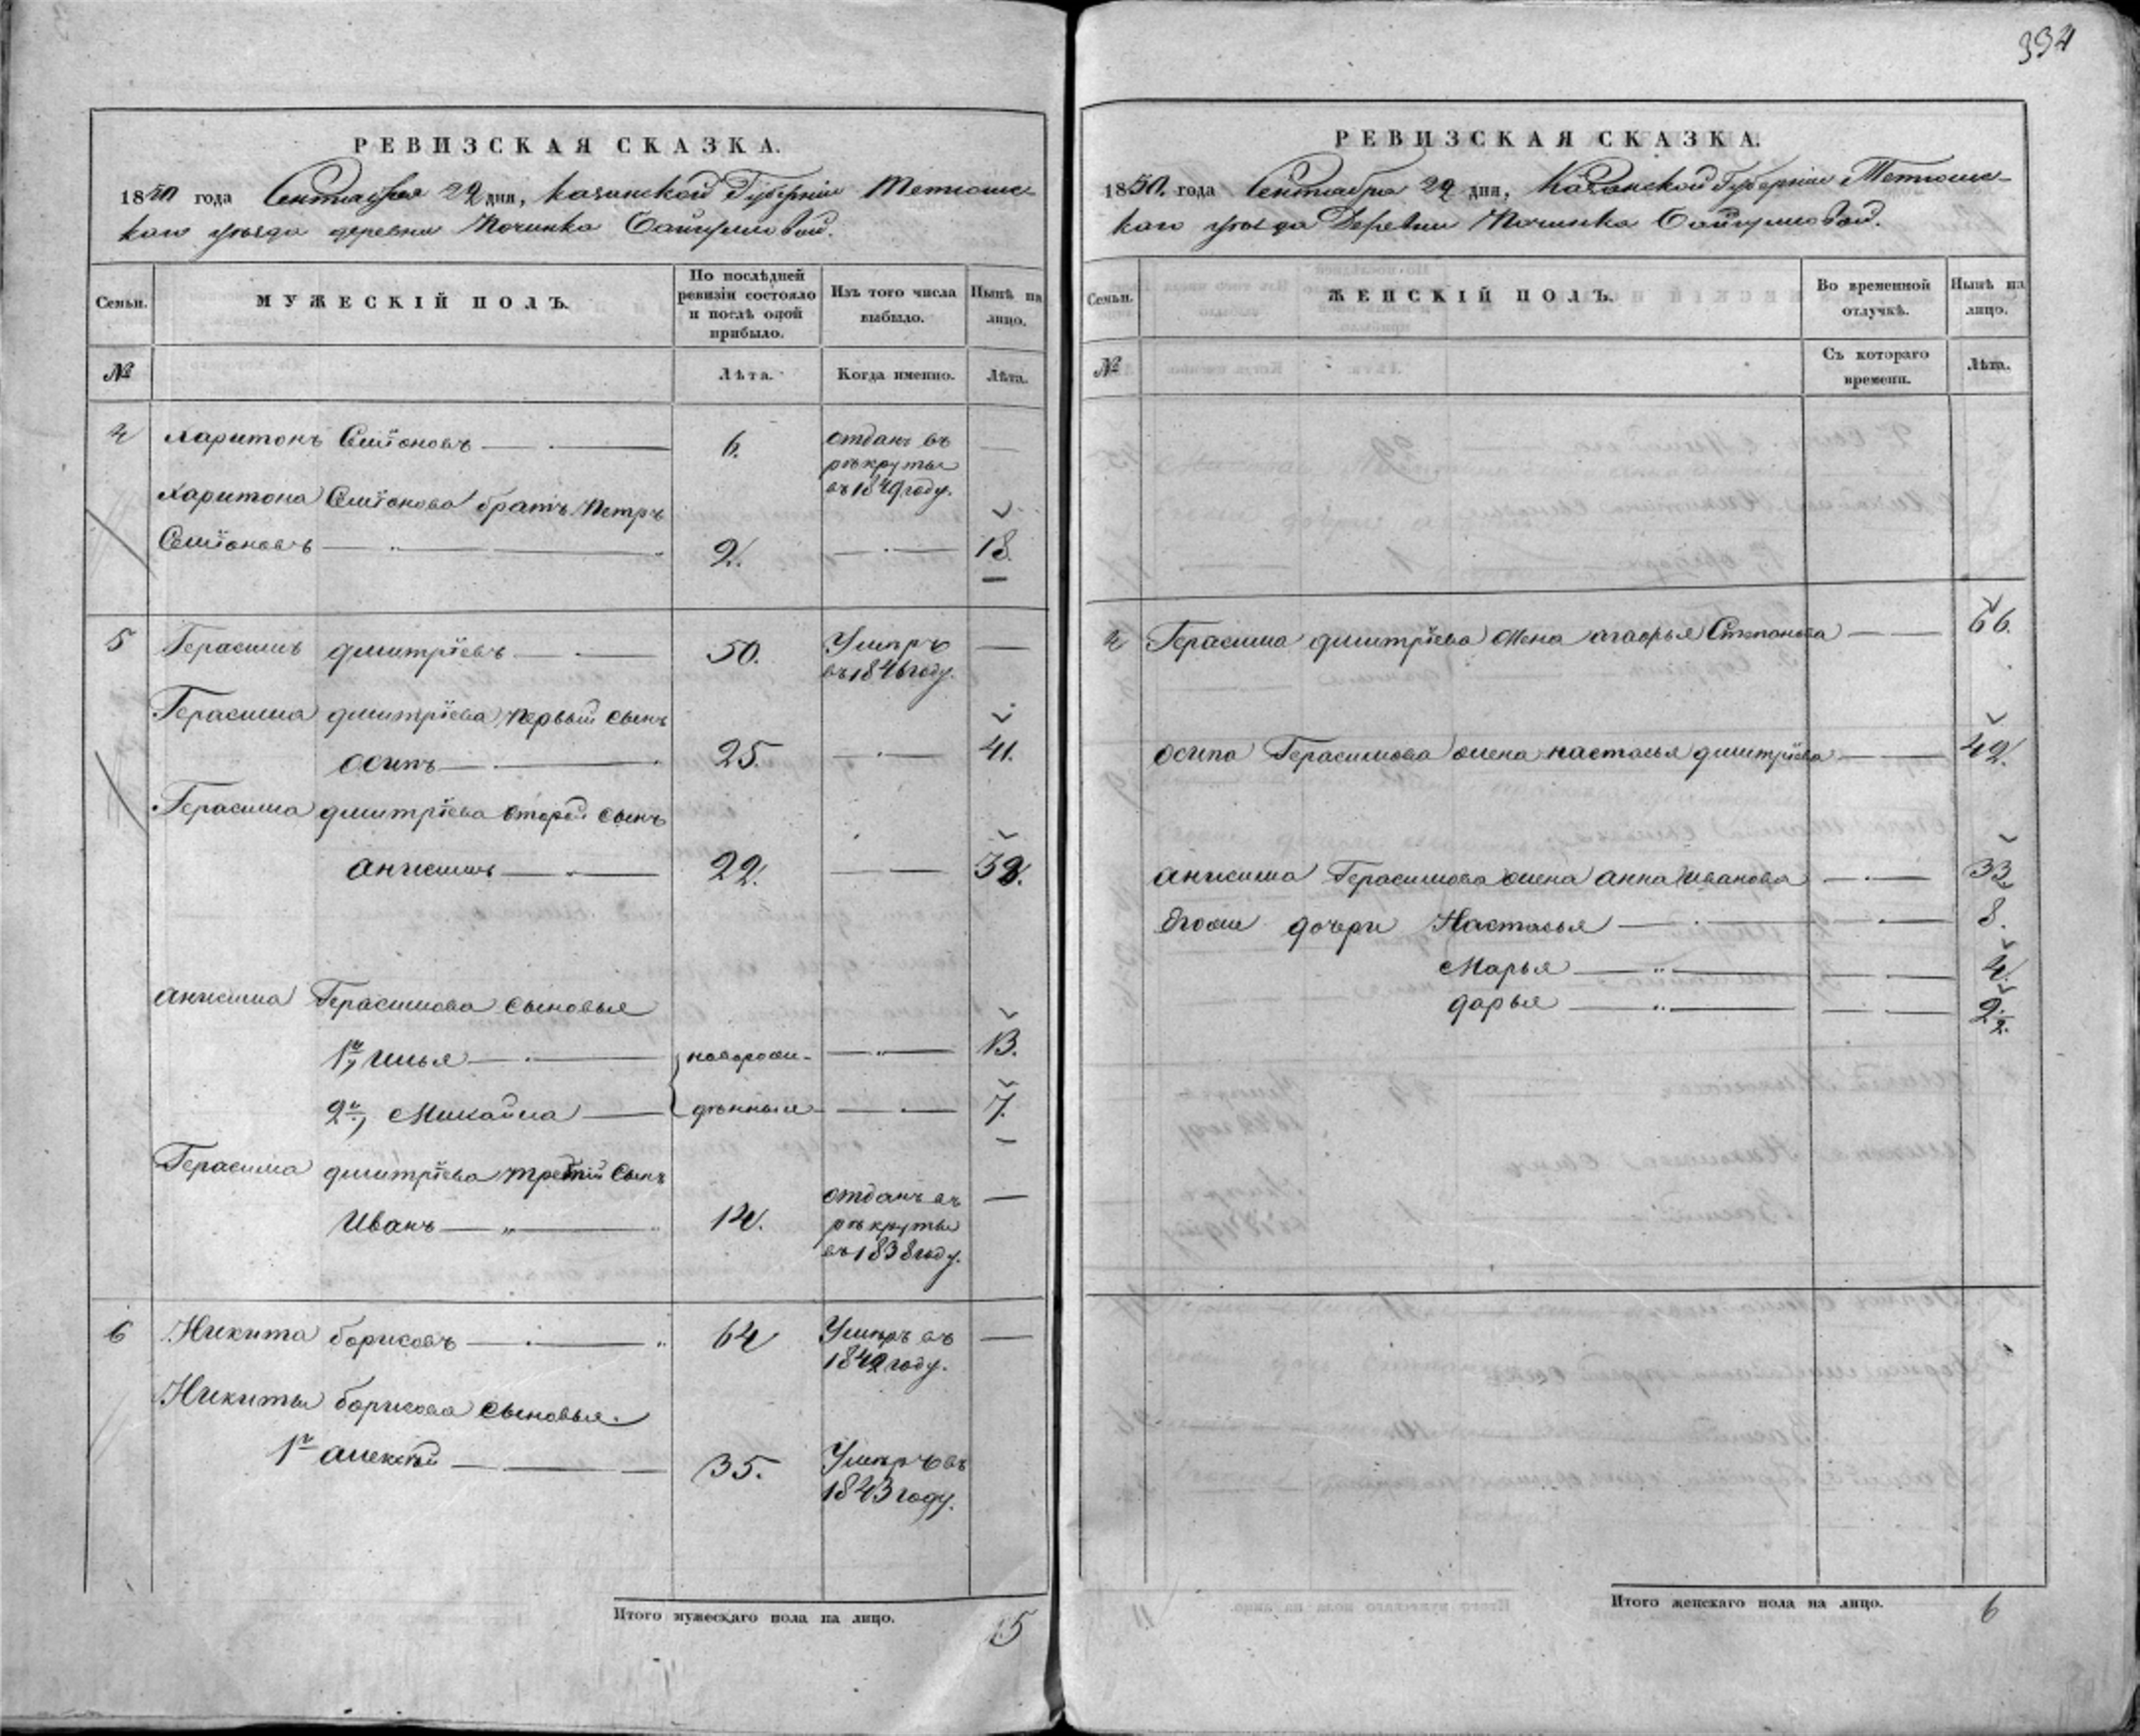 334
РЕВИЗСКАЯ СКАЗКА.
1850 года Сентября 22 дня, Казанской Губернiи Тетюшс-
каго уѣзда деревни Починка Байгуловой.
Семьи.
МУЖЕСКІЙ ПОЛЪ.
По послѣдней ревизіи состояло и послѣ оной прибыло.
Изъ того числа выбыло.
Нынѣ на лицо.
№
Лѣта.
Когда именно.
Лѣта.
4 Харитонъ Семіоновъ 6. отданъ въ
рѣкруты
въ 1849 году.
Харитона Семіонова братъ Петръ
Семіоновъ 2. 18.
5 Герасимъ дмитріевъ 50. Умѣръ
въ 1846 году.
Герасима дмитріева первый сынъ
осипъ 25. 41.
Герасима дмитріева второй сынъ
анисимъ 22. 38.
анисима Герасимова сыновья
1й илья новорож- 13.
2й Михайла дѣнныя 7.
Герасима дмитріева третій сынъ
Иванъ 14. отданъ въ
рѣкруты
въ 1838 году.
6 Никита борисовъ 64 Умѣръ въ
1842 году.
Никиты борисова сыновья.
1й алексѣй 35. Умѣръ въ
1843 году.
Итого мужескаго пола на лицо. 5
РЕВИЗСКАЯ СКАЗКА.
1850. года Сентября 22 дня, Казанской Губерніи Тетюшс-
каго уѣзда Деревни Починка Байгуловой.
Семьи.
ЖЕНСКІЙ ПОЛЪ.
Во временной отлучкѣ.
Нынѣ на лицо.
№
Съ котораго времени.
Лѣта.
Герасима дмитріева жена агафья Степанова 66.
осипа Герасимова жена настасья дмитріева 42.
анисима Герасимова жена анна иванова 33
Егоже дочери Настасья 8.
Марья 4.
дарья
Итого женскаго пола на лицо. 6